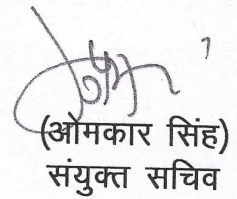 (ओमकार सिंह)
संयुक्त सचिव